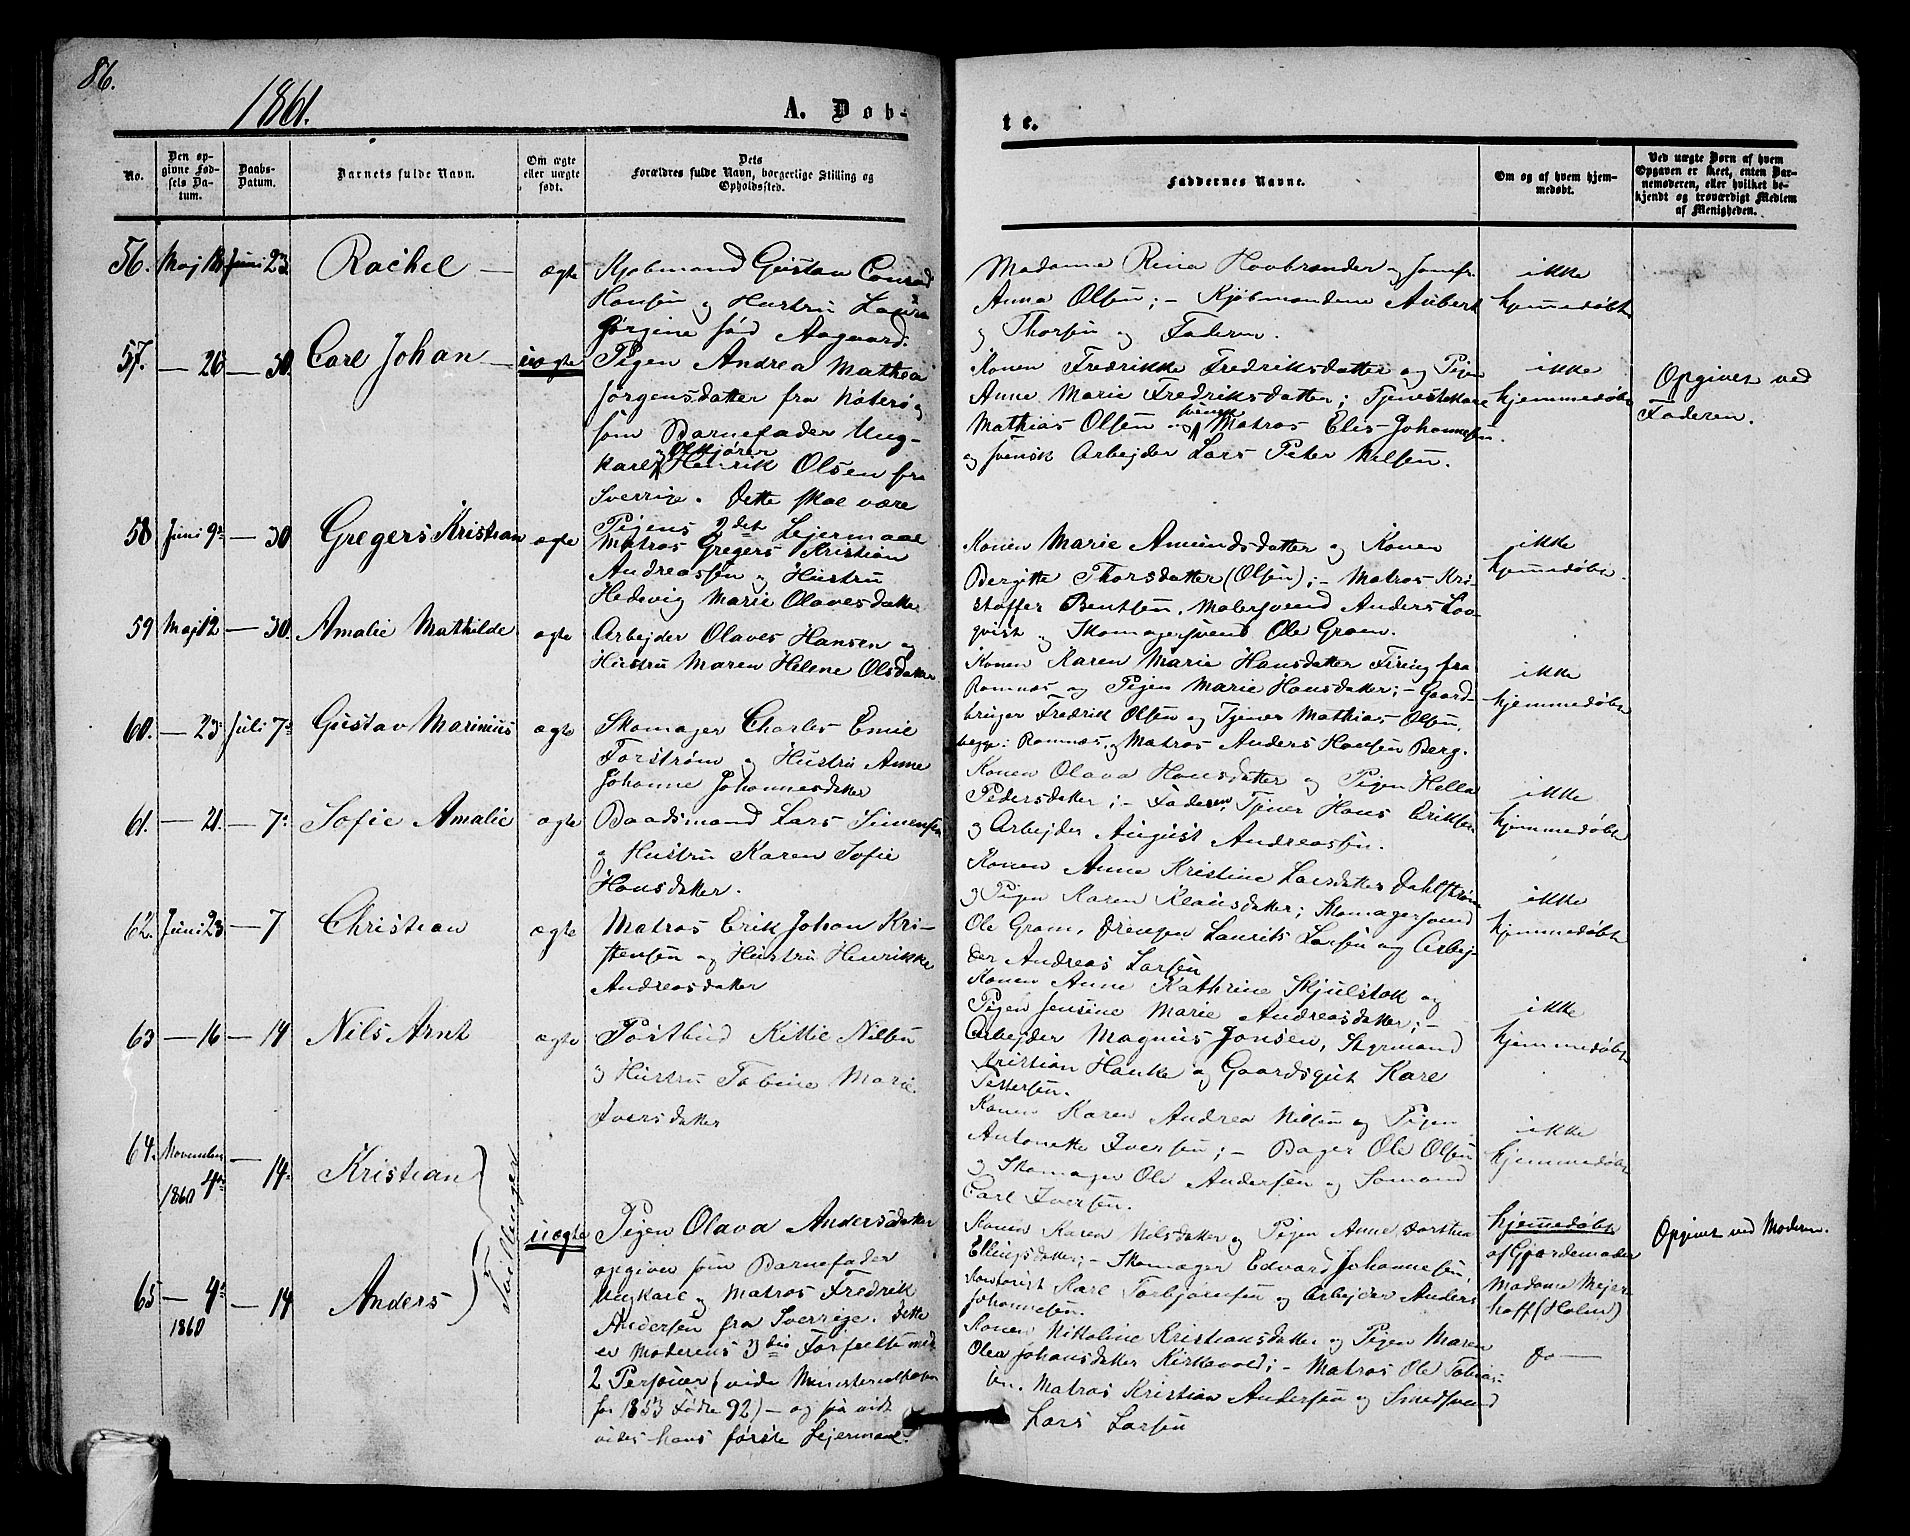 86.
1861.
A. Døb-
te.
No.
Den op-
givne Fød-
sels Da-
tum.
Daabs-
Datum.
Barnets fulde Navn.
Om ægte
eller uægte
født.
Dets
Forældres fulde Navn, borgerlige Stilling og
Opholdssted.
Faddernes Navne.
Om og af hvem hjem-
medøbt.
Ved uægte Børn af hvem
Opgaven er skeet, enten Bar-
nemoderen, eller hvilket be-
kjendt og troværdigt Medlem
af Menigheden.
56. Maj Juni 23 Rachel — ægte
Kjøbmand Gustav Conrad
Hansen og Hustru Laura
Jørgine fød Aagaard.
Madame Rina Hovbrander og Jomfr.
Anna Olsen; – Kjøbmændene Aubert
og Thorsen og Faderen.
ikke
hjemmedøbt
57. — 26 — 30. Carl Johan — uægte
Pigen Andrea Mathea
Jørgensdatter fra Nøterø,
som Barnefader Ung-
karl og Henrik Olsen fra
Sverrige. Dette skal være
Pigens 2det Lejermaal
Konen Fredrikke Fredriksdatter og Pigen
Anne Marie Fredriksdatter; Tjenestekarl
Mathias Olsen og svensk Matros Elis Johannesen
og svensk Arbejder Lars Peter Nilsen.
ikke
hjemmedøbt
Opgivet ved
Faderen.
58. Juni 9de — 30 Gregers Kristian ægte
Matros Gregers Kristian
Andreassen og Hustru
Hedevig Marie Olavesdatter
Konen Marie Amundsdatter og Konen
Bergitte Thorsdatter (Olsen); – Matros Kri-
stoffer Bentsen, Malersvend Anders Lov-
qvist og Skomagersvend Ole Gram.
ikke
hjemmedøbt.
59 Maj 12 — 30. Amalie Mathilde ægte
Arbejder Olaves Hansen og
Hustru Maren Helene Olsdatter
Konen Karen Marie Hansdatter Firing fra
Ramnæs og Pigen Marie Hansdatter; – Gaard-
bruger Fredrik Olsen og Tjener Mathias Olsen,
begge i Ramnæs, og Matros Anders Hansen Berg.
ikke
hjemmedøbt
60. — 23 Juli 7de Gustav Marinius ægte
Skomager Charles Emil
Forstrøm og Hustru Anne
Johanne Johannesdatter
Konen Olava Hansdatter og Pigen Hella
Pedersdatter; – Faderen, Tjener Hans Eriksen
og Arbejder August Andreasen.
ikke
hjemmedøbt
61. — 21. — 7de Sofie Amalie ægte
Baadsmand Lars Simensen
og Hustru Karen Sofie
Hansdatter.
Konen Anne Kristine Larsdatter Dahlstrøm
og Pigen Karen Klausdatter; Skomagersvend
Ole Gram, Drengen Laurits Larsen og Arbej-
der Andreas Larsen
ikke
hjemmedøbt
62. Juni 23 — 7 Christian ægte
Matros Erik Johan Kri-
stensen og Hustru Henrikke
Andreasdatter
Konen Anne Kathrine Skjulstok og
Pigen Jensine Marie Andreasdatter; –
Arbejder Magnus Jonsen, Styrmand
Kristian Hanke og Gaardsgut Karl
Pettersen.
ikke
hjemmedøbt
63 — 16 — 14 Nils Arnt ægte
Postbud Kittil Nilsen
og Hustru Tobine Marie
Iversdatter
Konen Karen Andrea Nilsen og Pigen
Antonette Iversen; – Bager Ole Olsen
og Skomager Ole Andersen og Sømand
Carl Iversen.
ikke
hjemmedøbt
64. November 4de 1860 — 14. Kristian
Tvillinger
uægte
Pigen Olava Andersdatter
opgiver som Barnefader
Ungkarl og Matros Fredrik
Andersen fra Sverrige. Dette
er Moderens 3die Forseelse med
2 Personer (vide Ministerialbogen
for 1853 Fødte 92) – og saa vidt
vides hans første Lejermaal.
Konen Karen Nilsdatter og Pigen Anne Dorthea
Ellingsdatter; – Skomager Edvard Johannesen,
Karl Torbjørnsen og Arbejder Anders
Johannesen.
hjemmedøbt
af Gjordemoder
Madame Mejer
hoff (Holm)
Opgivet ved Moderen.
65 — 4de 1860 — 14 Anders
Konen Nikoline Kristiansdatter og Pigen Maren
Olea Johansdatter Kirkevold; – Matros Ole Tobias-
sen. Matros Kristian Andersen og Smedsvend
Lars Larsen
do —